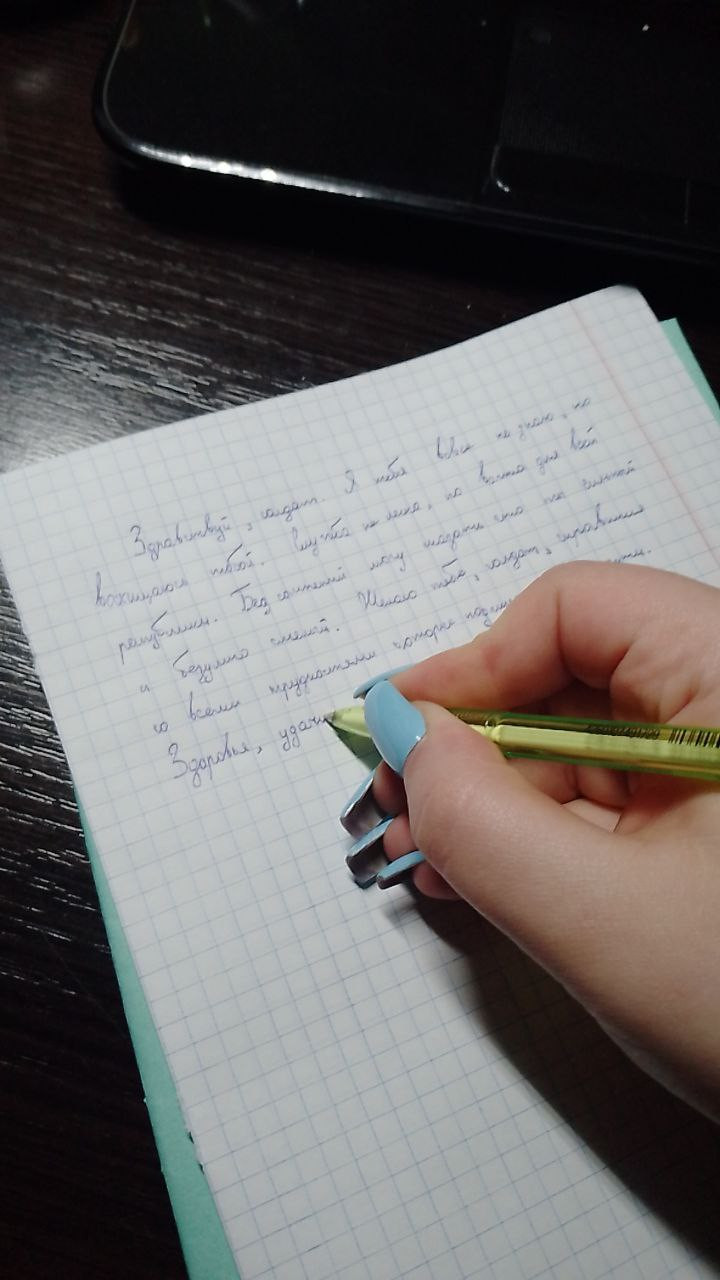 Здравствуй, солдат. Я тебя вовсе не знаю, но
восхищаюсь тобой. Служба не легка, но важна для всей
республики. Без сомнений могу сказать что ты сильный
и безумно смелый. Желаю тебе, солдат, справиться
со всеми трудностями которые
Здоровья, удачи